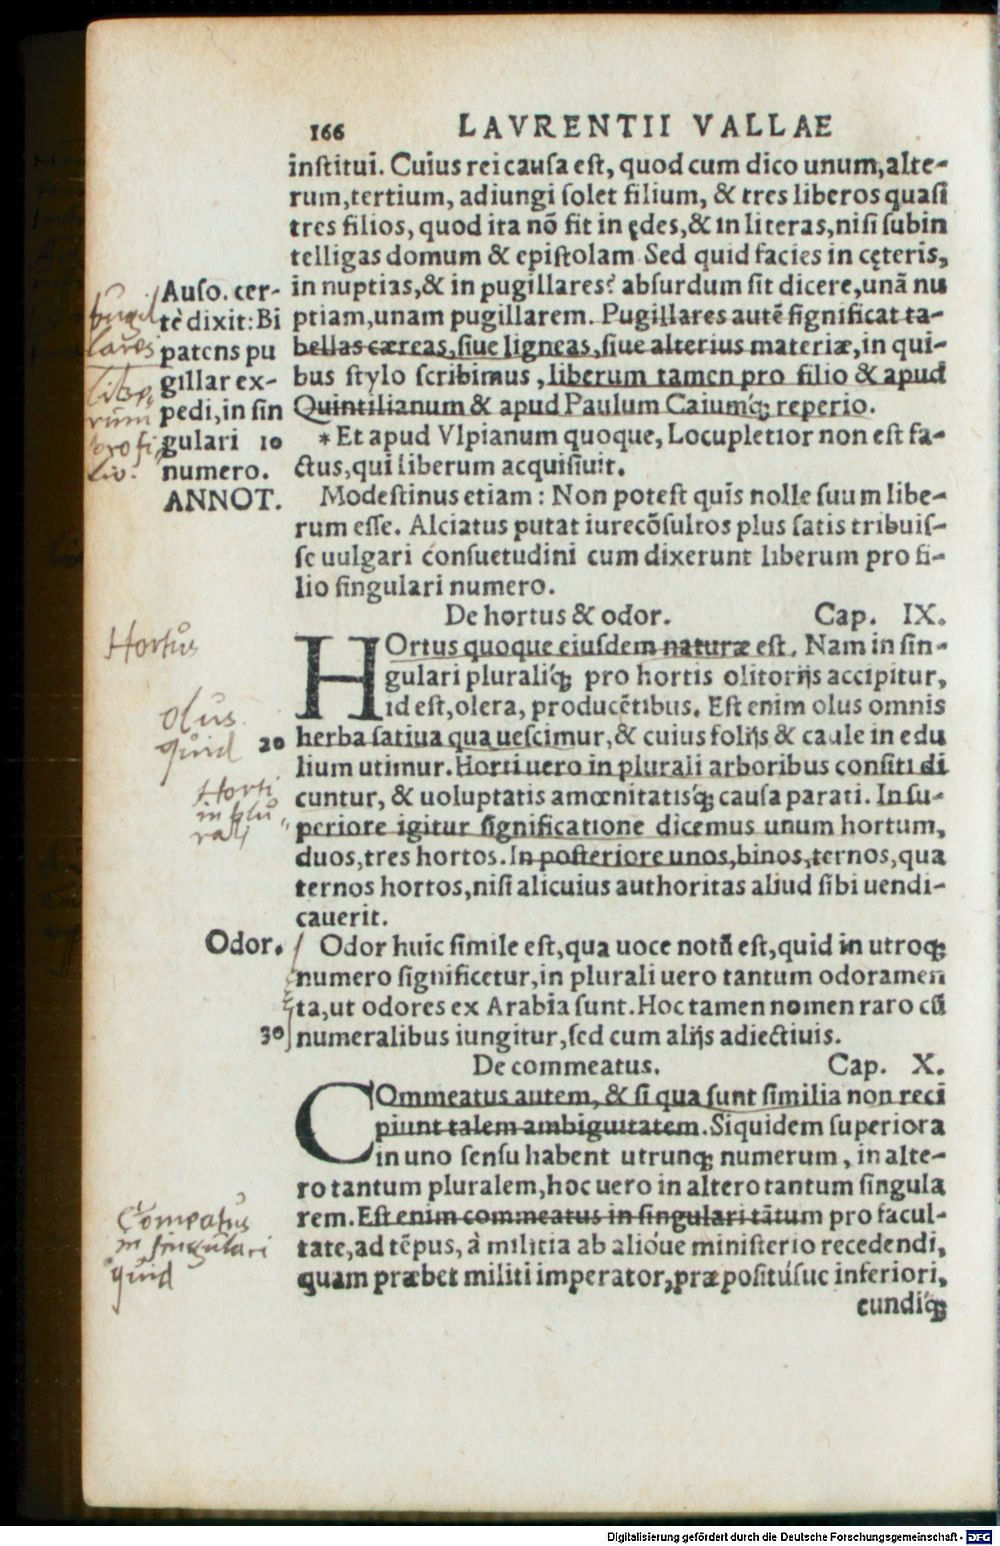 166 LAVRENTII VALLAE
institui. Cuius rei causa est, quod cum dico unum, alte-
rum, tertium, adiungi solet filium, & tres liberos quasi
tres filios, quod ita nõ fit in ędes, & in literas, nisi subin
telligas domum & epistolam Sed quid facies in cęteris,
in nuptias, & in pugillares? absurdum sit dicere, unã nu
ptiam, unam pugillarem. Pugillares autẽ significat ta-
bellas cæreas, siue ligneas, siue alterius materiæ, in qui-
bus stylo scribimus, liberum tamen pro filio & apud
Quintilianum & apud Paulum Caiumq́; reperio.
* Et apud Vlpianum quoque, Locupletior non est fa-
ctus, qui liberum acquisiuit.
Modestinus etiam: Non potest quis nolle suum libe-
rum esse. Alciatus putat iurecõsultos plus satis tribuis-
se uulgari consuetudini cum dixerunt liberum pro fi-
lio singulari numero.
Pugil
lares
Libe,
rum
pro fi,
lio.
Auso. cer-
tè dixit: Bi
patens pu
gillar ex-
pedi, in sin
gulari 10
numero.
ANNOT.
De hortus & odor. Cap. IX.
HOrtus quoque eiusdem naturæ est. Nam in sin-
gulari pluraliq́; pro hortis olitorijs accipitur,
id est, olera, producẽtibus. Est enim olus omnis
herba satiua qua uescimur, & cuius folijs & caule in edu
lium utimur. Horti uero in plurali arboribus consiti di
cuntur, & uoluptatis amœnitatisq́; causa parati. In su-
periore igitur significatione dicemus unum hortum,
duos, tres hortos. In posteriore unos, binos, ternos, qua
ternos hortos, nisi alicuius authoritas aliud sibi uendi-
cauerit.
Hortus
Olus
quid
20
Horti
in plu,
rali
Odor.
Odor huic simile est, qua uoce notũ est, quid in utroq;
numero significetur, in plurali uero tantum odoramen
ta, ut odores ex Arabia sunt. Hoc tamen nomen raro cũ
30 numeralibus iungitur, sed cum alijs adiectiuis.
De commeatus. Cap. X.
COmmeatus autem, & si qua sunt similia non reci
piunt talem ambiguitatem. Siquidem superiora
in uno sensu habent utrunq; numerum, in alte-
ro tantum pluralem, hoc uero in altero tantum singula
rem. Est enim commeatus in singulari tãtum pro facul-
tate, ad tẽpus, à militia ab alioúe ministerio recedendi,
quam præbet militi imperator, præpositúsue inferiori,
cundiq́;
Comeatus
in singulari
quid
Digitalisierung gefördert durch die Deutsche Forschungsgemeinschaft - DFG